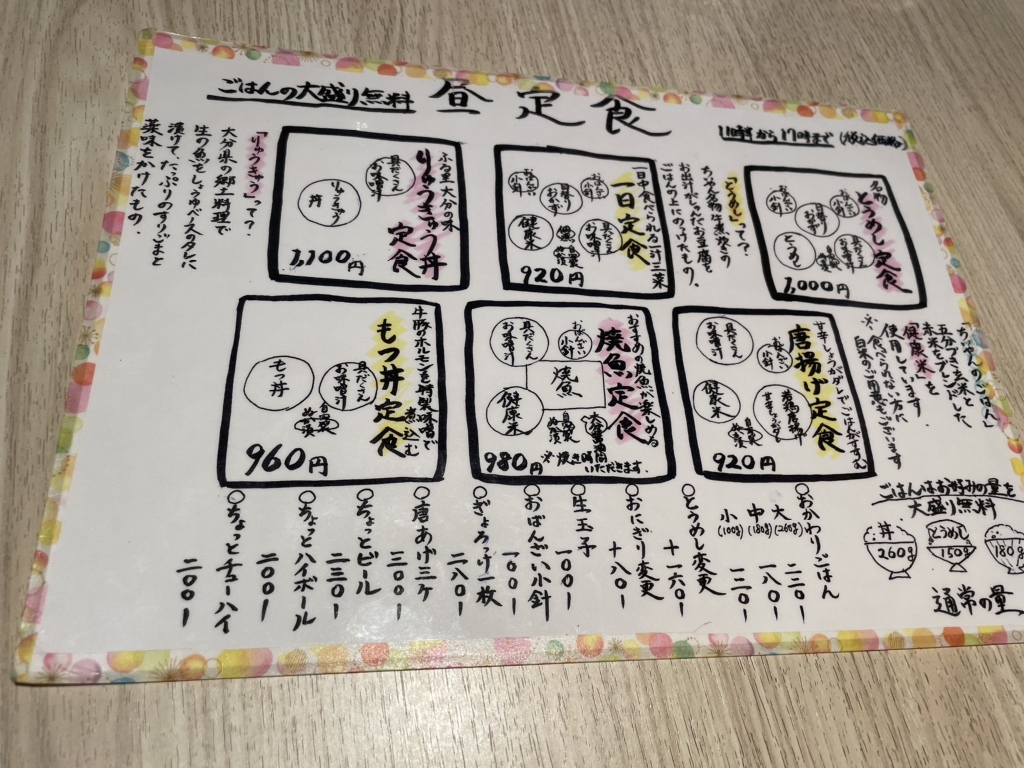 ごはんの大盛り無料
昼定食
11時半から17時まで(税込価格)
名物
とうめし定食
おばんざい小針
日替りおかず
おばんざい小針
とうめし
具だくさんお味噌汁
1,000円
「とうめし」って?
ちゃぶ名物牛煮炊きの
お出汁がしゅんだお豆腐を
ごはんの上にのっけたもの。
一日中食べられる一汁三菜
一日定食
おばんざい小針
日替りおかず
おばんざい小針
健康米
具だくさんお味噌汁
920円
ふる里大分の味
りゅうきゅう丼
定食
具だくさんお味噌汁
りゅうきゅう丼
1,100円
「りゅうきゅう」って?
大分県の郷土料理で
生の魚をしょうゆベースのタレに
漬けて、たっぷりのすりごまと
薬味をかけたもの。
五分づき玄米と
米をブレンドした
「健康米」を
使用しています
※食べられない方に
白米のご用意もございます
甘辛しょうがダレでごはんがすすむ
唐揚げ定食
具だくさんお味噌汁
おばんざい小針
健康米
920円
おすすめの焼魚が楽しめる
焼魚定食
具だくさんお味噌汁
おばんざい小針
焼魚
健康米
980円
※焼き時間
いただきます。
牛豚ホルモンを特製味噌で
煮込む
もつ丼定食
もつ丼
具だくさんお味噌汁
960円
ごはんはお好みの量を
大盛り無料
丼
260g
とうめし
150g
180g
通常の量
○おかわりごはん
大(260g) 二二〇-
中(180g) 一八〇-
小(100g) 一二〇-
○とうめし変更 +一六〇-
○おにぎり変更 +一八〇-
○生玉子 一〇〇-
○おばんざい小針 一〇〇-
○ぎょろっり一枚 二八〇-
○唐あげ三ケ 三〇〇-
○ちょっとビール 二三〇-
○ちょっとハイボール 二〇〇-
○ちょっとチューハイ 二〇〇-